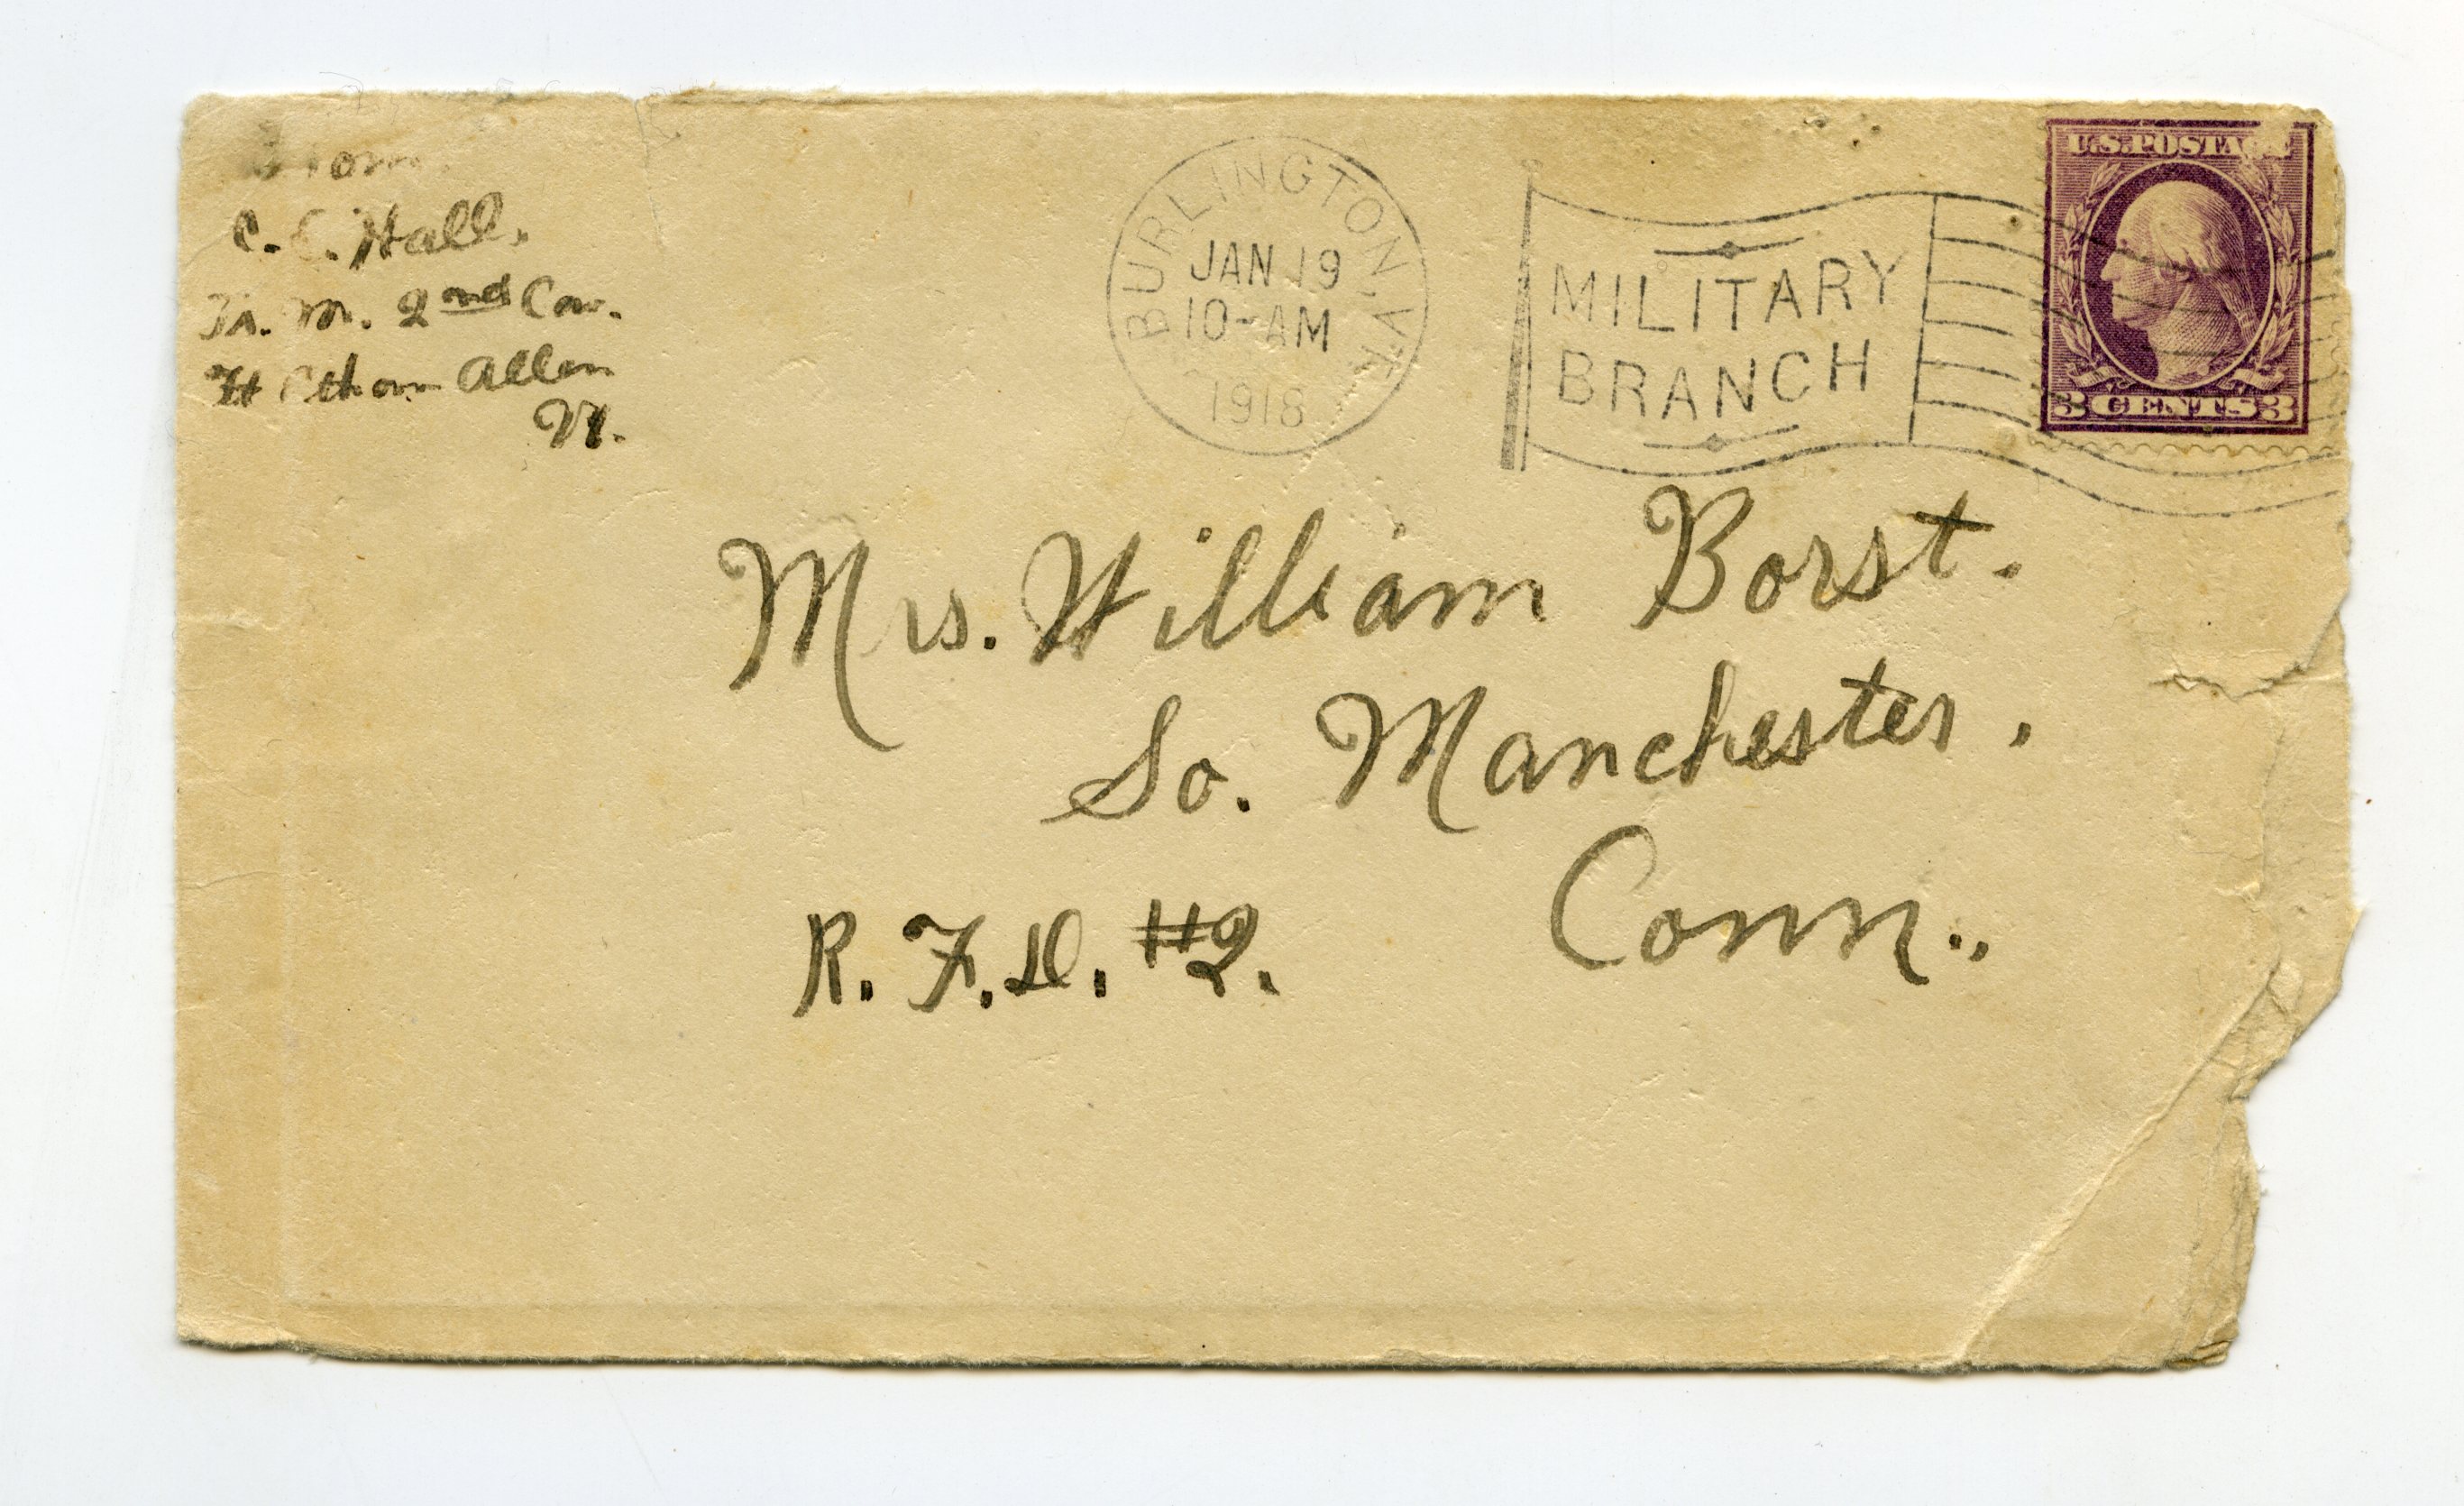 From
C. E. Hall.
Tr. M. 2nd Cav.
Ft Ethan Allen
Vt.
BURLINGTON, VT.
JAN 19
10-AM
1918
MILITARY
BRANCH
U.S. POSTAGE
3 CENTS 3
Mrs. William Borst.
So. Manchester.
Conn.,
R. F. D. #2.